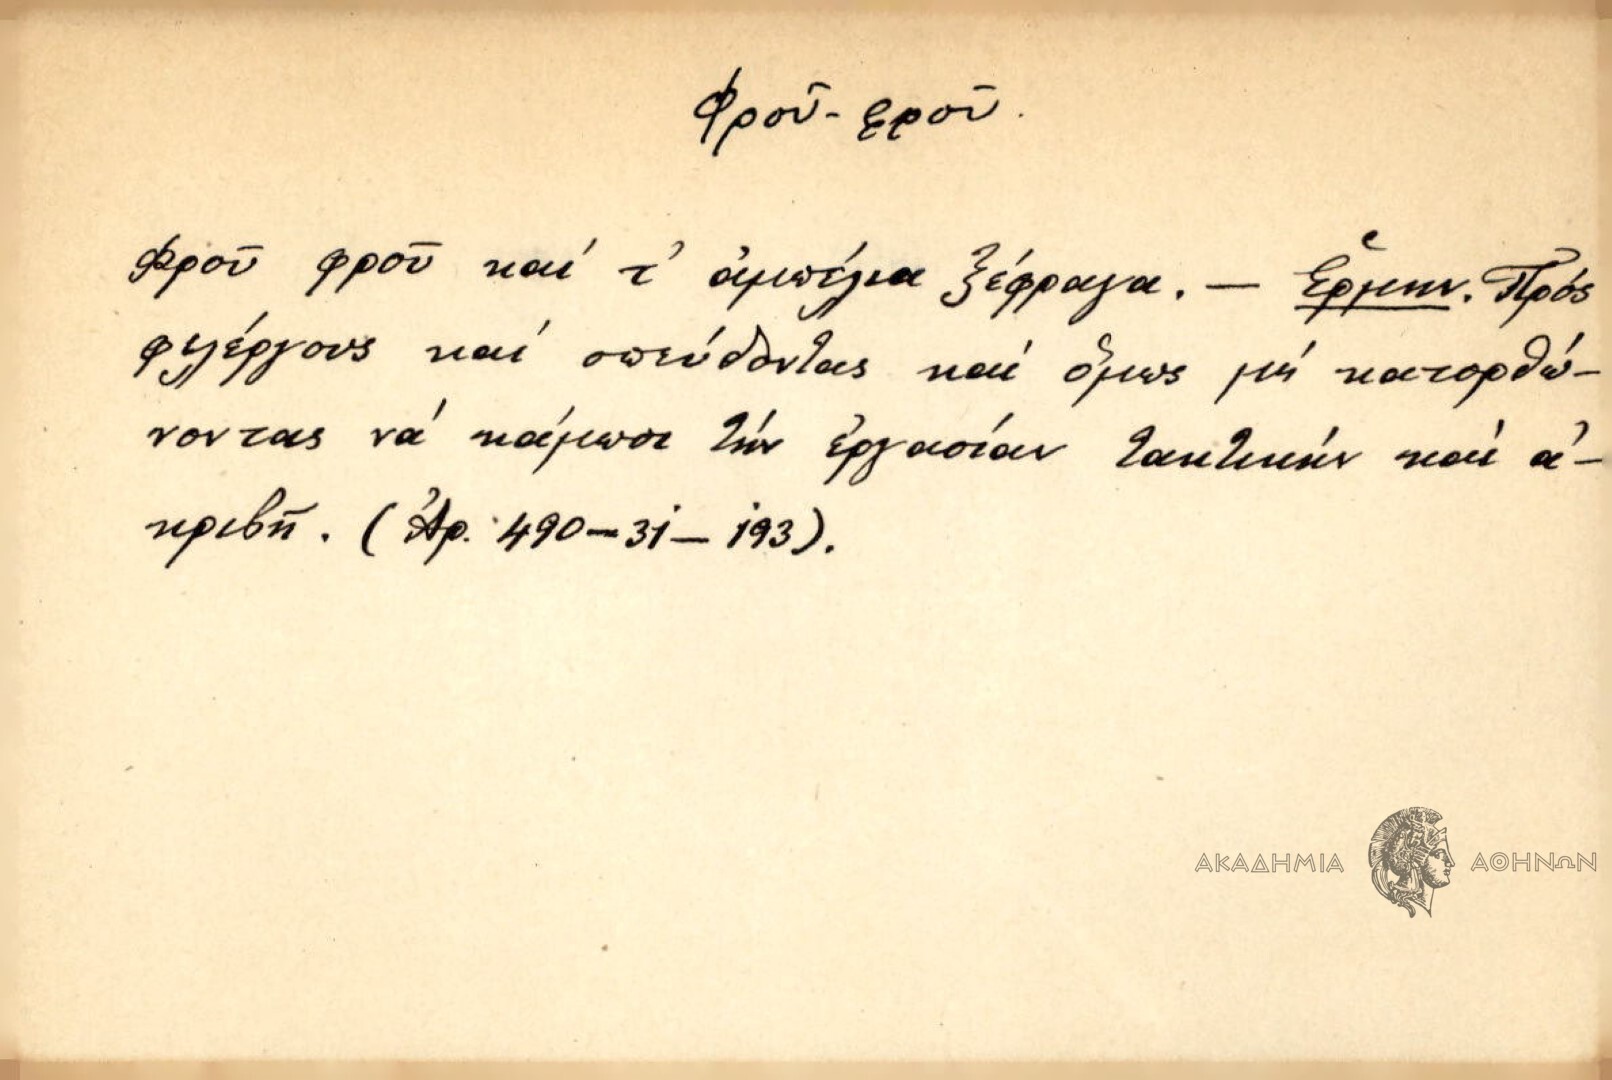 Φροῦ - φροῦ.
Φροῦ φροῦ καί τ' ἀμπέλια ξέφραγα. — Ἑρμην. Πρός
φιλέργους καί σπεύδοντας καί ὅμως μή κατορθώ-
νοντας νά κάμωσι τήν ἐργασίαν τακτικήν καί ἀ-
κριβῆ. (Ἀρ. 490-31-193).
ΑΚΑΔΗΜΙΑ ΑΘΗΝΩΝ